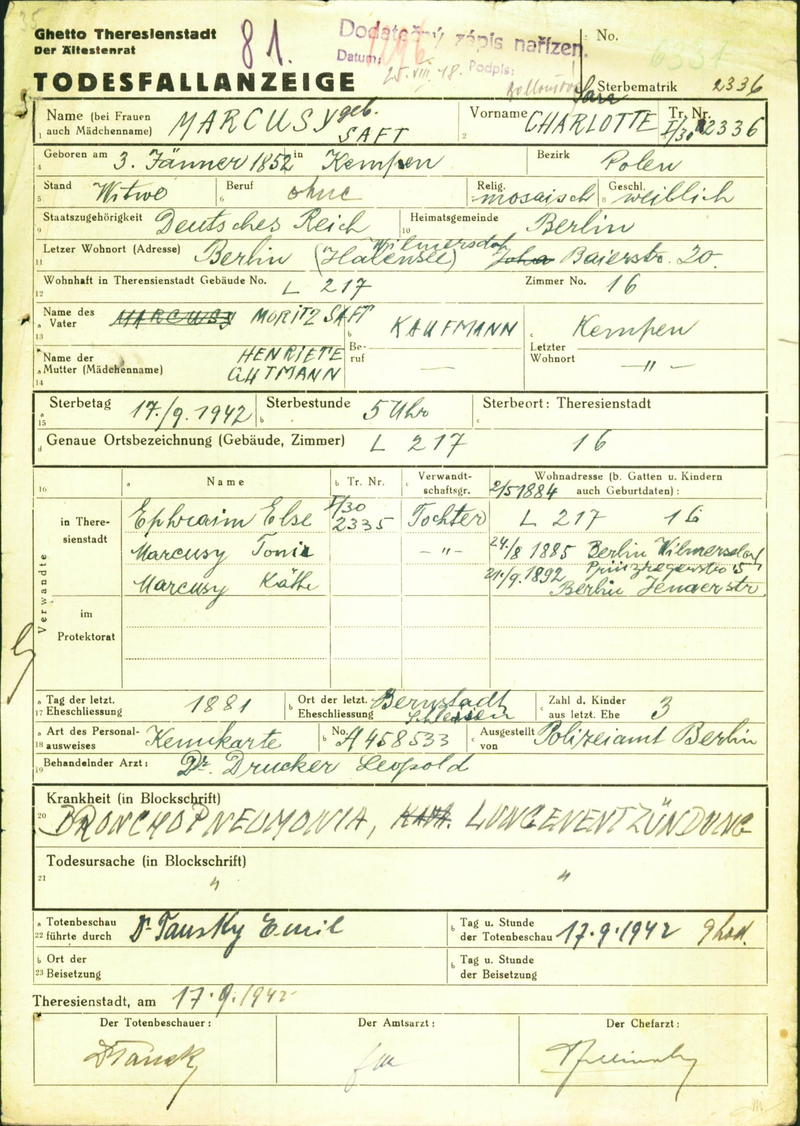 Ghetto Theresienstadt
Der Ältestenrat
81.
Dodatečný zápis nařízen.
Datum: 25. VIII. 48. Podpis:
No.
TODESFALLANZEIGE
Sterbematrik 2336
Name (bei Frauen auch Mädchenname) MARCUSY geb. SAFT
Vorname Sara CHARLOTTE Tr. Nr. I/30 2336
Geboren am 3. Jänner 1852 in Kempen Bezirk Polen
Stand Witwe Beruf ohne Relig. mosaisch Geschl. weiblich
Staatszugehörigkeit Deutsches Reich Heimatsgemeinde Berlin
Letzer Wohnort (Adresse) Berlin (Halensee) Wilmersdorf Baierstr. 20.
Wohnhaft in Theresienstadt Gebäude No. L 217 Zimmer No. 16
Name des Vater MARCUSY MORITZ SAFT KAUFMANN Kempen
Name der Mutter (Mädchenname) HENRIETE GUTMANN Beruf — Letzter Wohnort — " —
Sterbetag 17./9. 1942 Sterbestunde 5 Uhr Sterbeort: Theresienstadt
Genaue Ortsbezeichnung (Gebäude, Zimmer) L 217 16
Name Tr. Nr. Verwandtschaftsgr. Wohnadresse (b. Gatten u. Kindern auch Geburtdaten):
Verwandte
in Theresienstadt
Ephraim Else I/30 2335 Tochter 2/5 1884 L 217 16
Marcusy Tonia — " — 24./8 1885 Berlin Wilmersdorf
Marcusy Käthe 21./9. 1892 Berlin Jenaerstr.
im Protektorat
Tag der letzt. Eheschliessung 1881 Ort der letzt. Eheschliessung Bernstadt Schlesien Zahl d. Kinder aus letzt. Ehe 3
Art des Personalausweises Kennkarte No. A 458533 Ausgestellt von Polizeiamt Berlin
Behandelnder Arzt: Dr. Drucker Leopold
Krankheit (in Blockschrift)
BRONCHOPNEUMONIA, LUNGENENTZÜNDUNG
Todesursache (in Blockschrift)
" "
Totenbeschau führte durch Dr Tausky Emil Tag u. Stunde der Totenbeschau 17.9.1942 9 hod.
Ort der Beisetzung Tag u. Stunde der Beisetzung
Theresienstadt, am 17.9.1942
Der Totenbeschauer: Der Amtsarzt: Der Chefarzt: